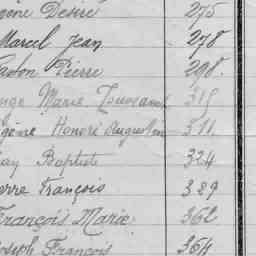 Désiré 275
Marcel Jean 278
Gaston Pierre 298.
Ange Marie Toussaint 315
Eugène Honoré Augustin 311.
Baptiste 324
Pierre François 339
François Marie 362
Joseph François 364